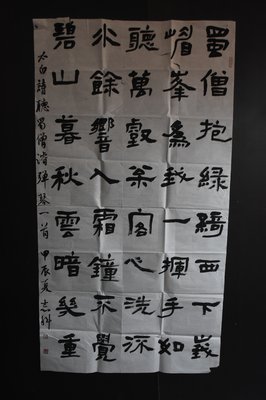 蜀僧抱綠綺西下峩
嵋峯為我一揮手如
聽萬壑枀客心洗流
水餘響入霜鐘不覺
碧山暮秋雲暗幾重
太白詩聽蜀僧濬彈琴一首 甲辰夏 志科